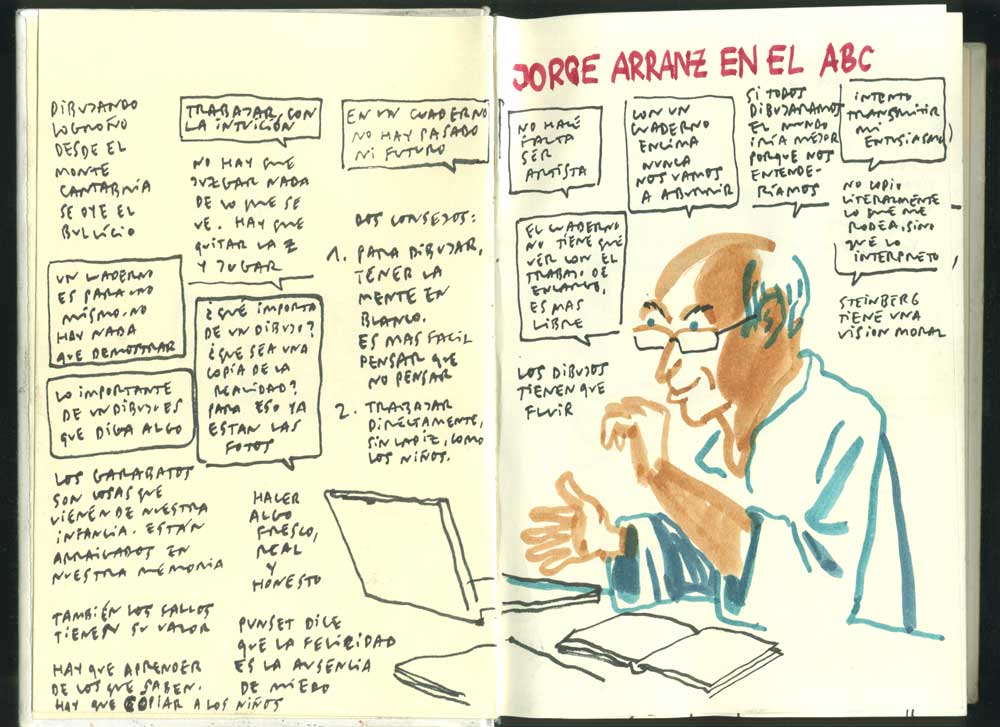 JORGE ARRANZ EN EL ABC
DIBUJANDO
LOGROÑO
DESDE EL
MONTE
CANTABRIA
SE OYE EL
BULLICIO
UN CUADERNO
ES PARA UNO
MISMO. NO
HAY NADA
QUE DEMOSTRAR
LO IMPORTANTE
DE UN DIBUJO ES
QUE DIGA ALGO
LOS GARABATOS
SON COSAS QUE
VIENEN DE NUESTRA
INFANCIA. ESTÁN
ARRAIGADOS EN
NUESTRA MEMORIA
TAMBIÉN LOS FALLOS
TIENEN SU VALOR
HAY QUE APRENDER
DE LOS QUE SABEN.
HAY QUE COPIAR A LOS NIÑOS
TRABAJAR CON
LA INTUICIÓN
NO HAY QUE
JUZGAR NADA
DE LO QUE SE
VE. HAY QUE
QUITAR LA Z
Y JUGAR
¿QUÉ IMPORTA
DE UN DIBUJO?
¿QUE SEA UNA
COPIA DE LA
REALIDAD?
PARA ESO YA
ESTAN LAS
FOTOS
HACER
ALGO
FRESCO,
REAL
Y
HONESTO
PUNSET DICE
QUE LA FELICIDAD
ES LA AUSENCIA
DE MIEDO
EN UN CUADERNO
NO HAY PASADO
NI FUTURO
DOS CONSEJOS:
1. PARA DIBUJAR,
TENER LA
MENTE EN
BLANCO.
ES MAS FACIL
PENSAR QUE
NO PENSAR
2. TRABAJAR
DIRECTAMENTE,
SIN LAPIZ, COMO
LOS NIÑOS.
NO HACE
FALTA
SER
ARTISTA
CON UN
CUADERNO
ENCIMA
NUNCA
NOS VAMOS
A ABURRIR
SI TODOS
DIBUJARAMOS
EL MUNDO
IRIA MEJOR
PORQUE NOS
ENTENDE-
RÍAMOS
INTENTO
TRANSMITIR
MI
ENTUSIASMO
EL CUADERNO
NO TIENE QUE
VER CON EL
TRABAJO DE
ENCARGO,
ES MAS
LIBRE
NO COPIO
LITERALMENTE
LO QUE ME
RODEA, SINO
QUE LO
INTERPRETO
STEINBERG
TIENE UNA
VISION MORAL
LOS DIBUJOS
TIENEN QUE
FLUIR